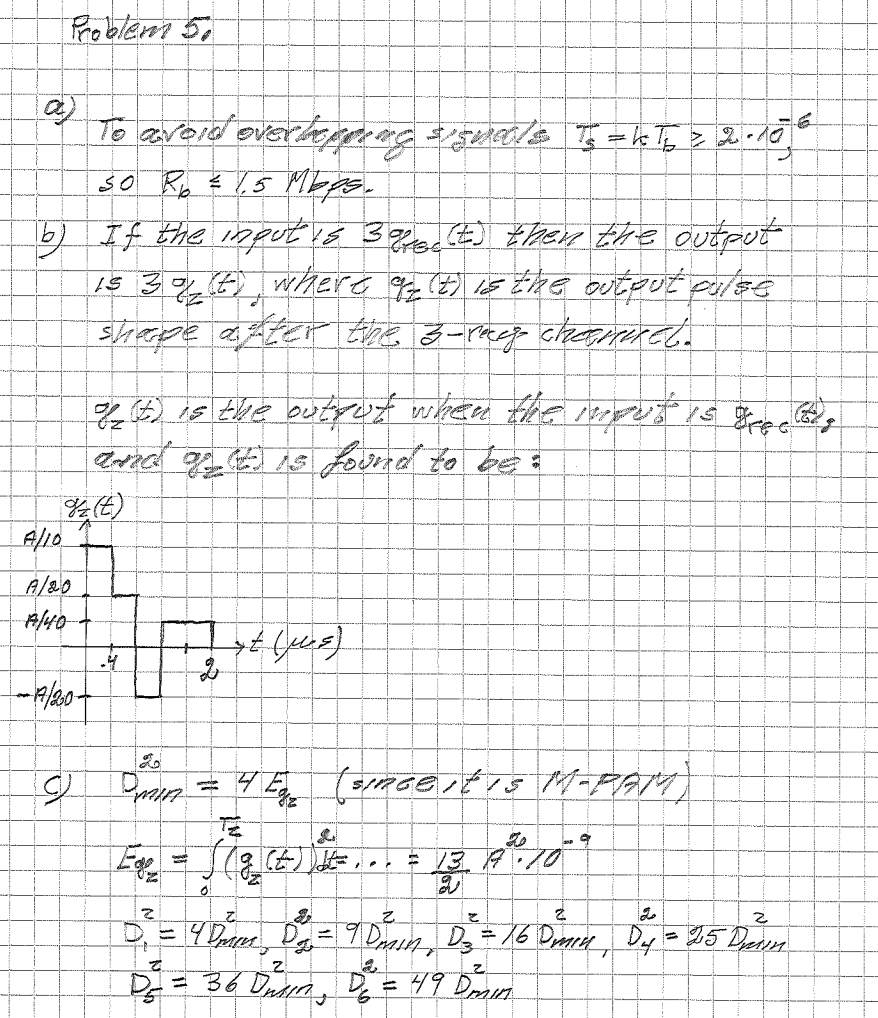 Problem 5.
a)
To avoid overlapping signals T_s = kT_b ≥ 2·10^-6,
so R_b ≤ 1.5 Mbps.
b) If the input is 3g_rec(t) then the output
is 3g_z(t), where g_z(t) is the output pulse
shape after the 3-ray channel.
g_z(t) is the output when the input is g_rec(t),
and g_z(t) is found to be:
g_z(t)
A/10
A/20
A/40
t (μs)
.4 2
-A/20
c) D²_min = 4 E_g_z (since it is M-PAM)
E_g_z = ∫_0^T_z (g_z(t))² dt = ... = 13/2 A²·10^-9
D_1² = 4D²_min, D_2² = 9D²_min, D_3² = 16D²_min, D_4² = 25D²_min
D_5² = 36D²_min, D_6² = 49D²_min